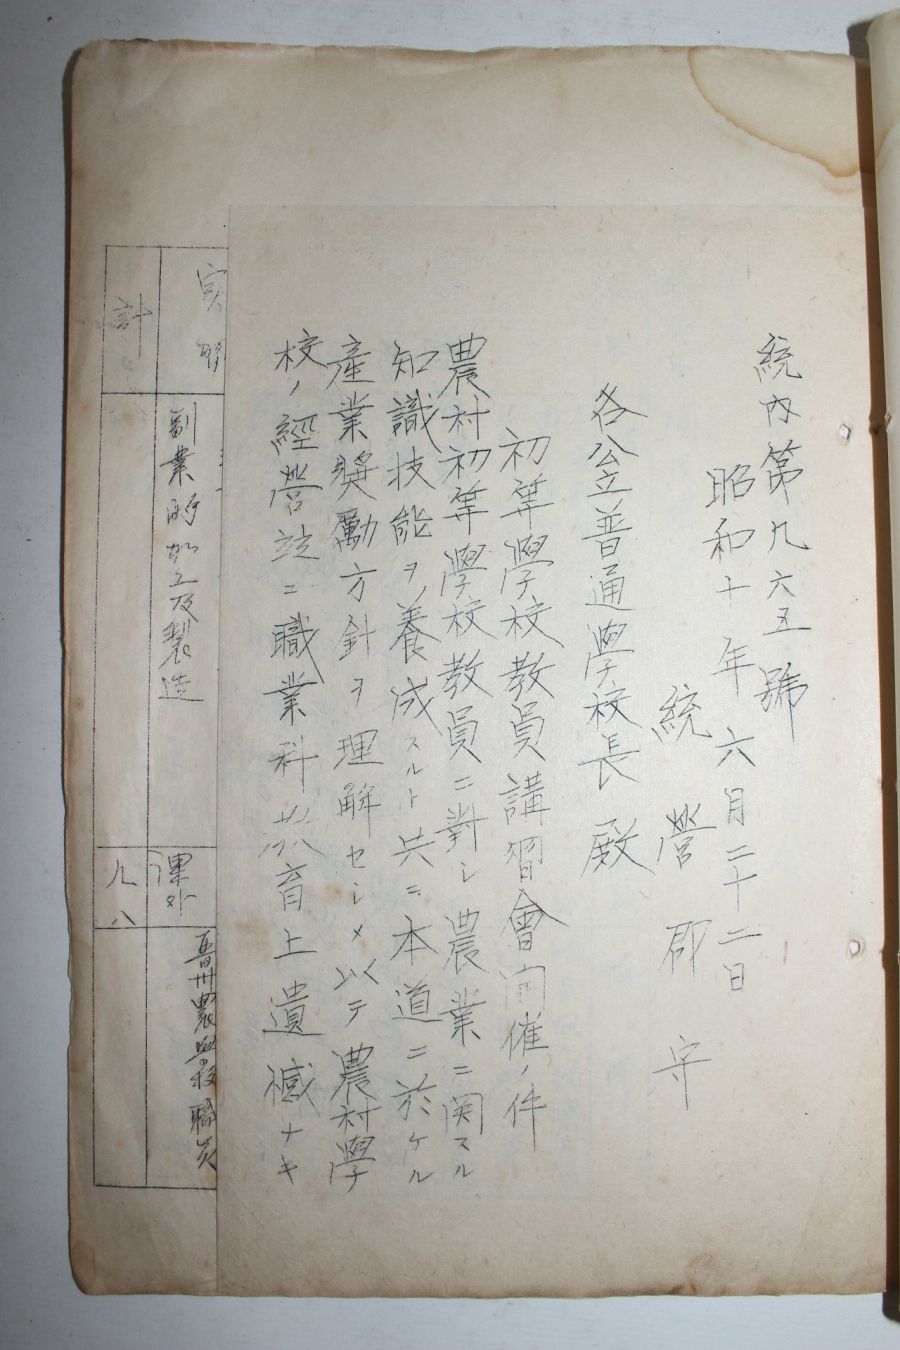 統内第九六五號
昭和十年六月二十二日
統營郡守
各公立普通學校長殿
初等學校教員講習會開催ノ件
農村初等學校教員ニ對シ農業ニ関スル
知識技能ヲ養成スルト共ニ本道ニ於ケル
産業奨勵方針ヲ理解セシメ以テ農村學
校ノ經營並ニ職業科教育上遺憾ナキ
実習
副業的加工及製造
課外
晋州農學校職員
計
九八